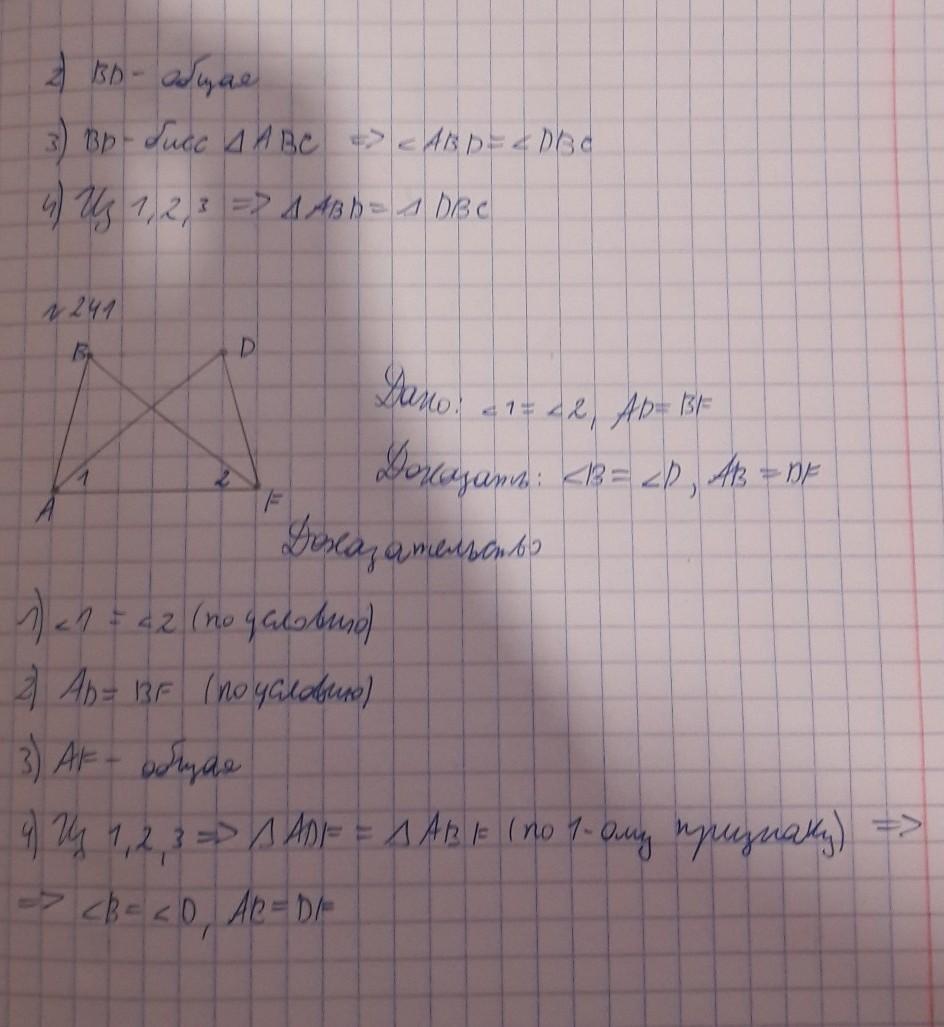 2) BD - общая
3) BD - бисс △ABC => <ABD = <DBC
4) Из 1,2,3 => △ABD = △DBC
№241
B D
1 2
A F
Дано: <1 = <2, AD = BF
Доказать: <B = <D, AB = DF
Доказательство
1) <1 = <2 (по условию)
2) AD = BF (по условию)
3) AF - общая
4) Из 1,2,3 => △ADF = △ABF (по 1-ому признаку) =>
=> <B = <D, AB = DF